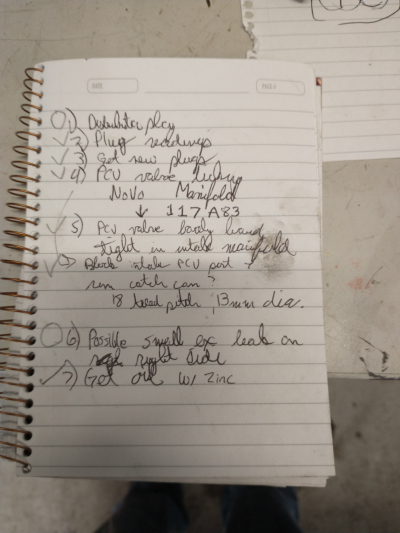 DATE
PAGE
1) Distributor play
✓ 2) Plug readings
✓ 3) Get new plugs
✓ 4) PCV valve
Novo Manifold
↓ 117 A83
✓ 5) PCV valve body
tight in intake manifold
Block intake PCV port +
run catch can?
18 tread pitch, 13mm dia.
6) Possible small ex leak on
right side
✓ 7) Get oil w/ Zinc